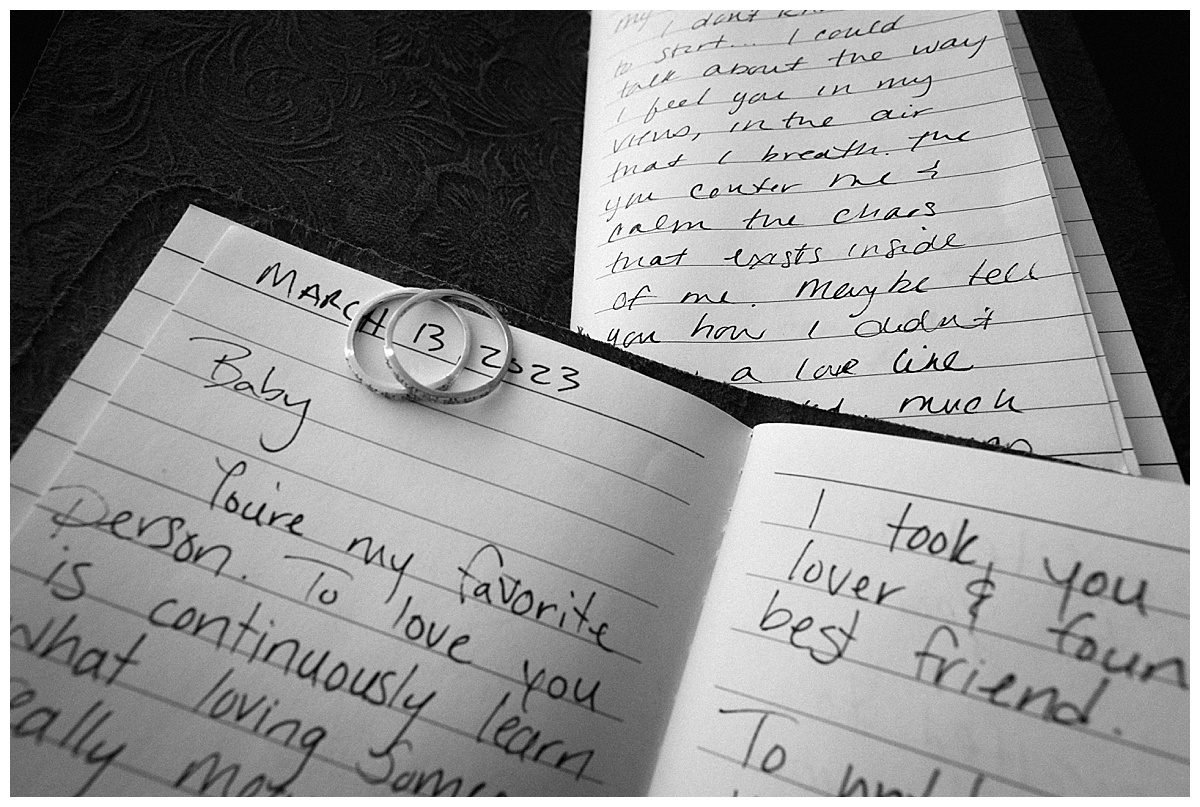 MARCH 13 2023
Baby
You're my favorite
Person. To love you
is continuously learn
what loving
I took you
lover &
best friend.
To
my I don't
to start... I could
talk about the way
I feel you in my
viens, in the air
that I breath. The
you center me &
calm the chaos
that exists inside
of me. Maybe tell
you how I didn't
a love like
much